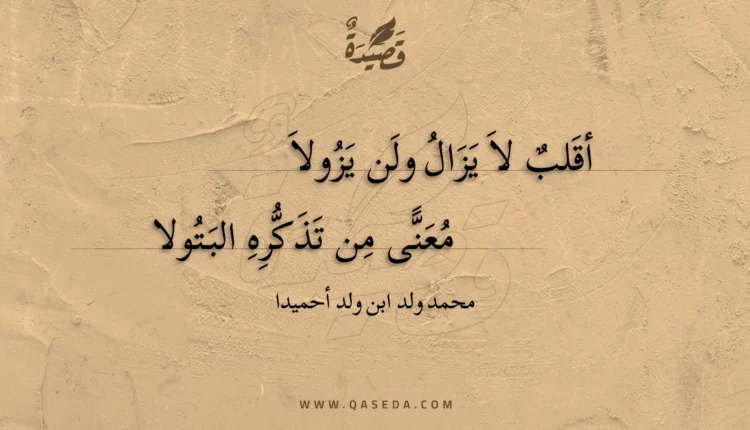 قَصِيدَةٌ
أقَلبٌ لاَ يَزَالُ ولَن يَزُولاَ
مُعَنًّى مِن تَذَكُّرِهِ البَتُولا
محمد ولد ابن ولد أحميدا
WWW.QASEDA.COM